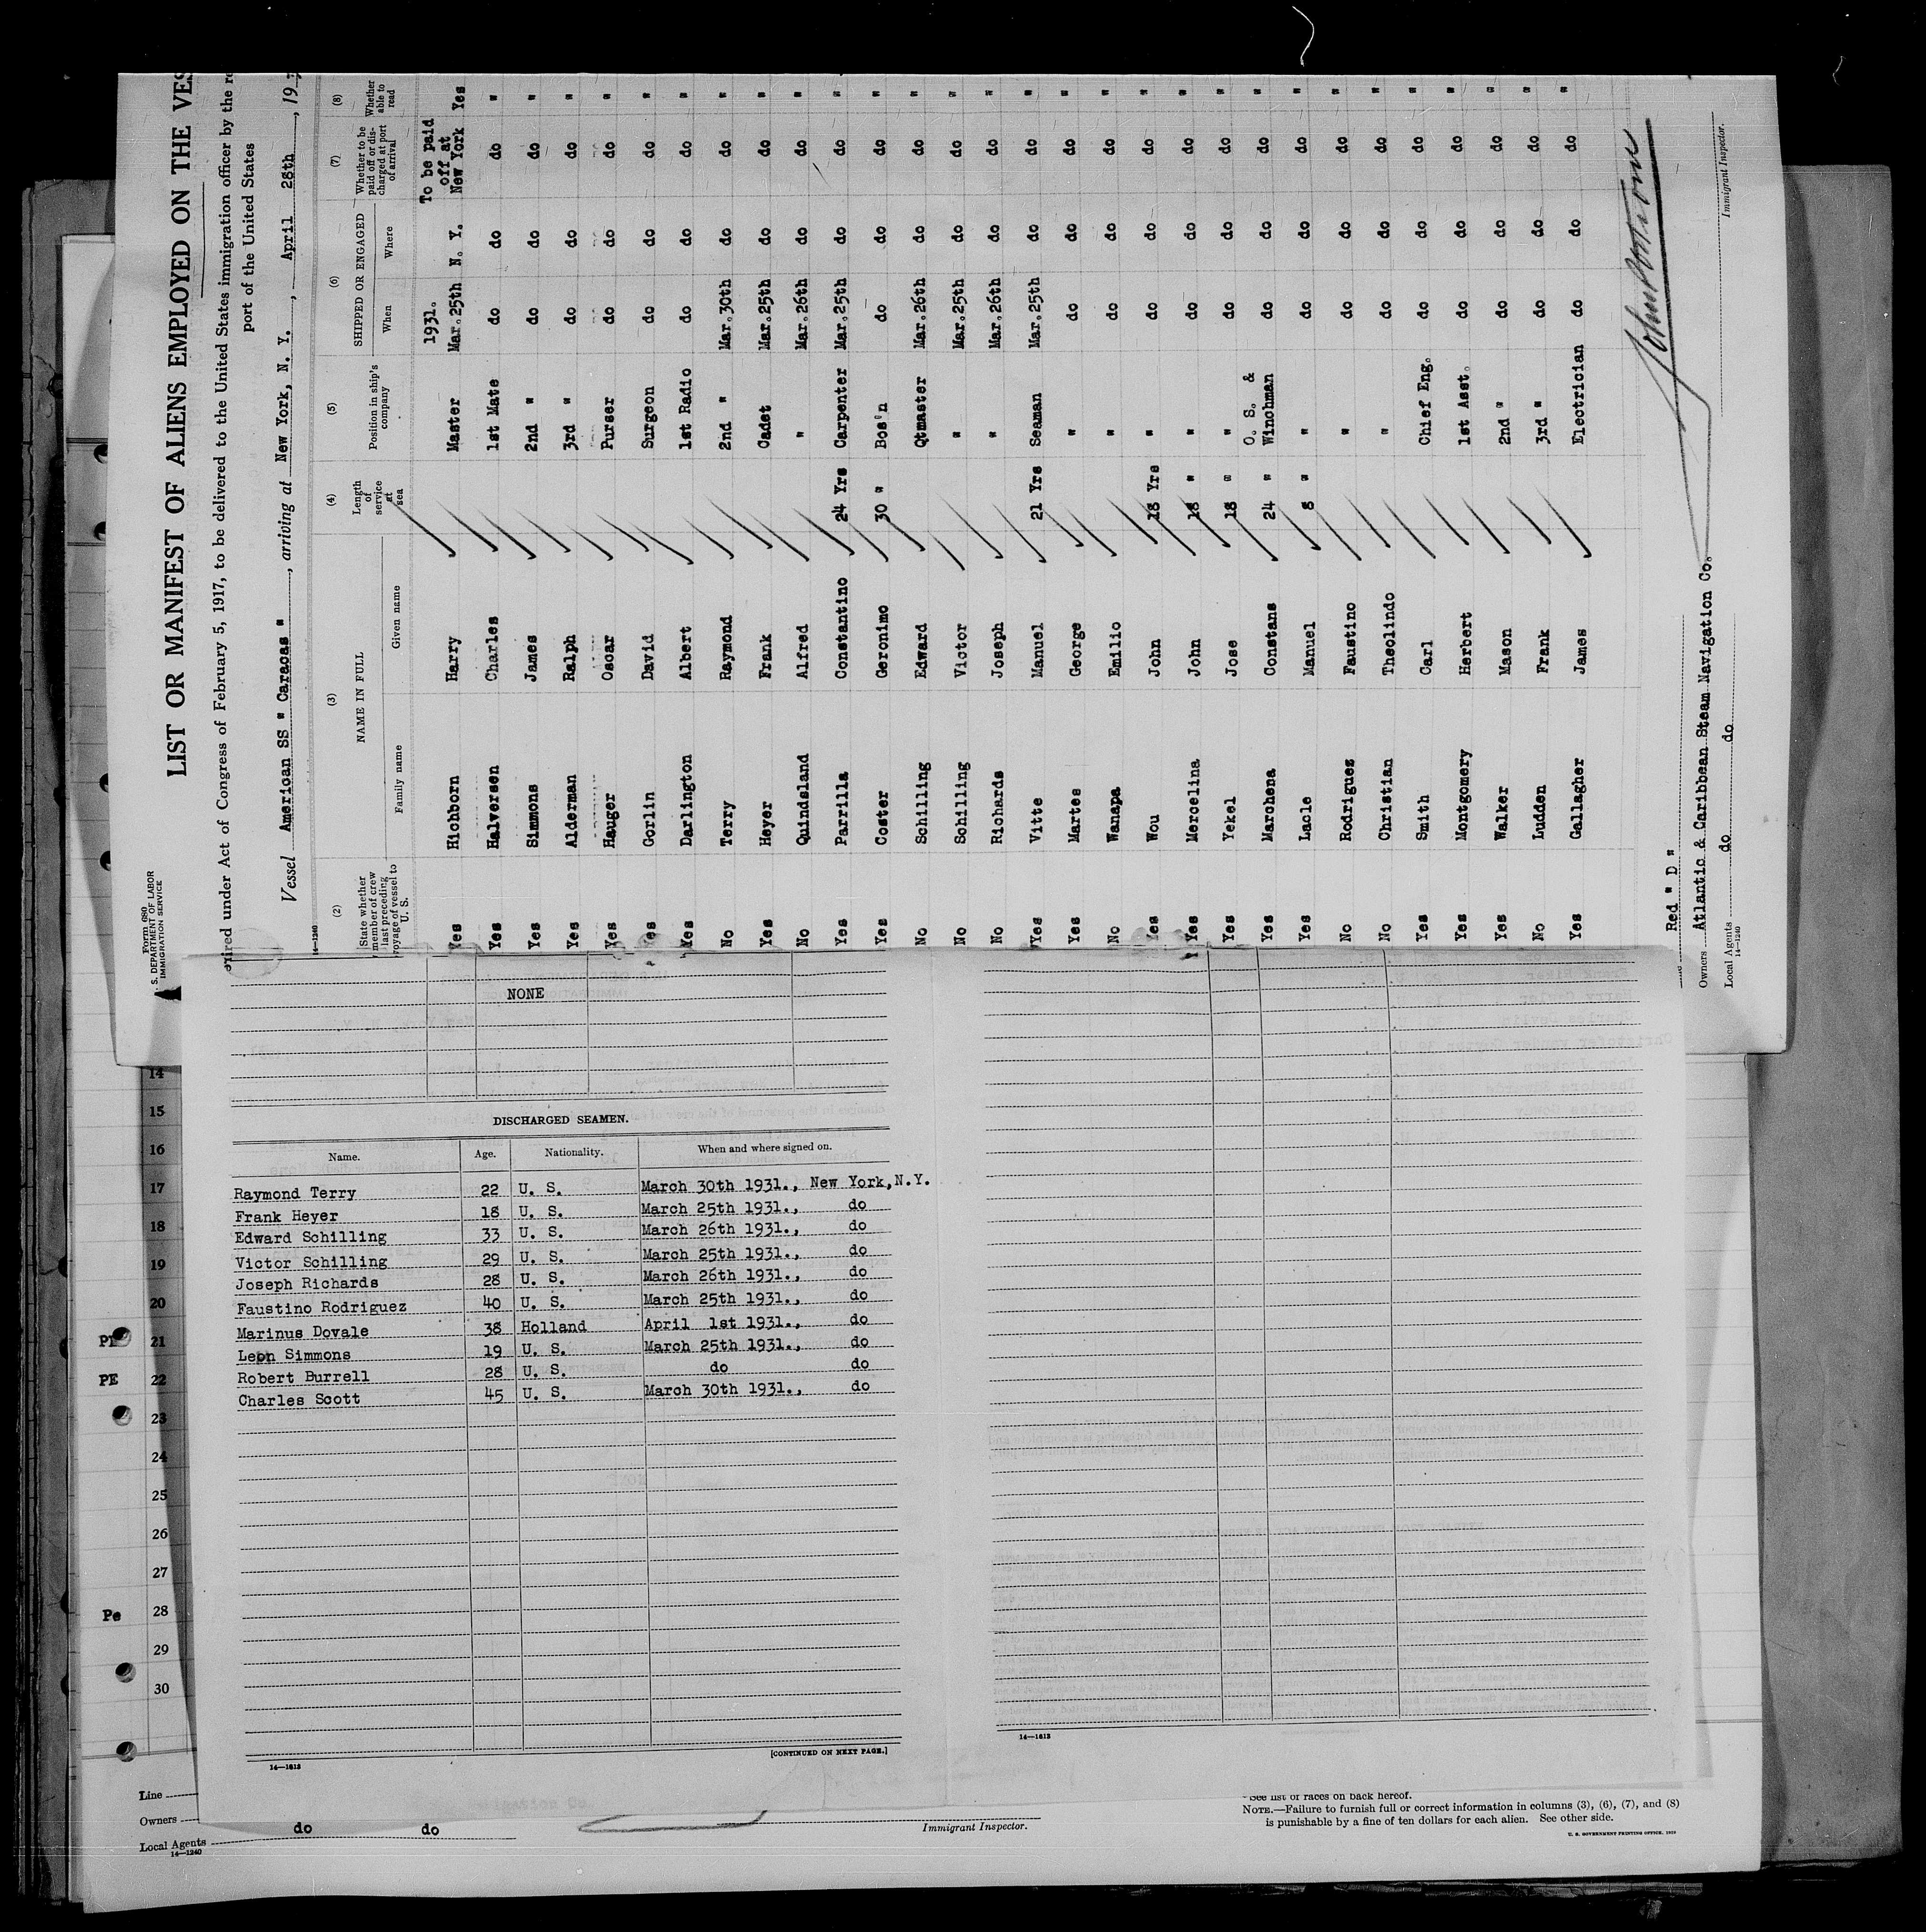 Form 680
S. DEPARTMENT OF LABOR
IMMIGRATION SERVICE
LIST OR MANIFEST OF ALIENS EMPLOYED ON THE VES
under Act of Congress of February 5, 1917, to be delivered to the United States immigration officer by the
port of the United States
Vessel American SS " Caracas ", arriving at New York, N. Y., April 28th, 19
14—1240
(2) (3) (4) (5) (6) (7) (8)
State whether member of crew last preceding voyage of vessel to U. S.
NAME IN FULL
Family name Given name
Length of service at sea
Position in ship's company
SHIPPED OR ENGAGED
When Where
Whether to be paid off or discharged at port of arrival
Whether able to read
1931. To be paid off at
Yes Hichborn Harry Master Mar.25th N. Y. New York Yes
Yes Halversen Charles 1st Mate do do do "
Yes Simmons James 2nd " do do do "
Yes Alderman Ralph 3rd " do do do "
Yes Hauger Oscar Purser do do do "
Yes Gorlin David Surgeon do do do "
Yes Darlington Albert 1st Radio do do do "
No Terry Raymond 2nd " Mar.30th do do "
Yes Heyer Frank Cadet Mar.25th do do "
No Quindsland Alfred " Mar.26th do do "
Yes Parrilla Constantino 24 Yrs Carpenter Mar.25th do do "
Yes Coster Geronimo 30 " Bos'n do do do "
No Schilling Edward Qtmaster Mar.26th do do "
No Schilling Victor " Mar.25th do do "
No Richards Joseph " Mar.26th do do "
Yes Vitte Manuel 21 Yrs Seaman Mar.25th do do "
Yes Martes George " do do do "
No Wanapa Emilio " do do do "
Yes Wou John 18 Yrs " do do do "
Yes Mercelina John 18 " " do do do "
Yes Yekel Jose 18 " " do do do "
O. S. &
Yes Marchena Constans 24 " Winchman do do do "
Yes Lacle Manuel 8 " " do do do "
No Rodriguez Faustino " do do do "
No Christian Theolindo " do do do "
Yes Smith Carl Chief Eng. do do do "
Yes Montgomery Herbert 1st Asst. do do do "
Yes Walker Mason 2nd " do do do "
No Ludden Frank 3rd " do do do "
Yes Gallagher James Electrician do do do "
Red " D "
Owners Atlantic & Caribbean Steam Navigation Co.
Local Agents do do
14—1240
Immigrant Inspector.
NONE
DISCHARGED SEAMEN.
Name. Age. Nationality. When and where signed on.
Raymond Terry 22 U. S. March 30th 1931., New York,N.Y.
Frank Heyer 18 U. S. March 25th 1931., do
Edward Schilling 33 U. S. March 26th 1931., do
Victor Schilling 29 U. S. March 25th 1931., do
Joseph Richards 28 U. S. March 26th 1931., do
Faustino Rodriguez 40 U. S. March 25th 1931., do
Marinus Dovale 38 Holland April 1st 1931., do
Leon Simmons 19 U. S. March 25th 1931., do
Robert Burrell 28 U. S. do do
Charles Scott 45 U. S. March 30th 1931., do
[CONTINUED ON NEXT PAGE.]
14—1613
14—1613
14
15
16
17
18
19
20
21
PE 22
23
24
25
26
27
Pe 28
29
30
Line
Owners
do do
Local Agents
14—1240
Immigrant Inspector.
* See list of races on back hereof.
NOTE.—Failure to furnish full or correct information in columns (3), (6), (7), and (8)
is punishable by a fine of ten dollars for each alien. See other side.
U. S. GOVERNMENT PRINTING OFFICE. 1929